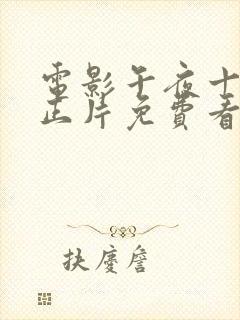 電影午夜十
正片免費看
扶慶詹